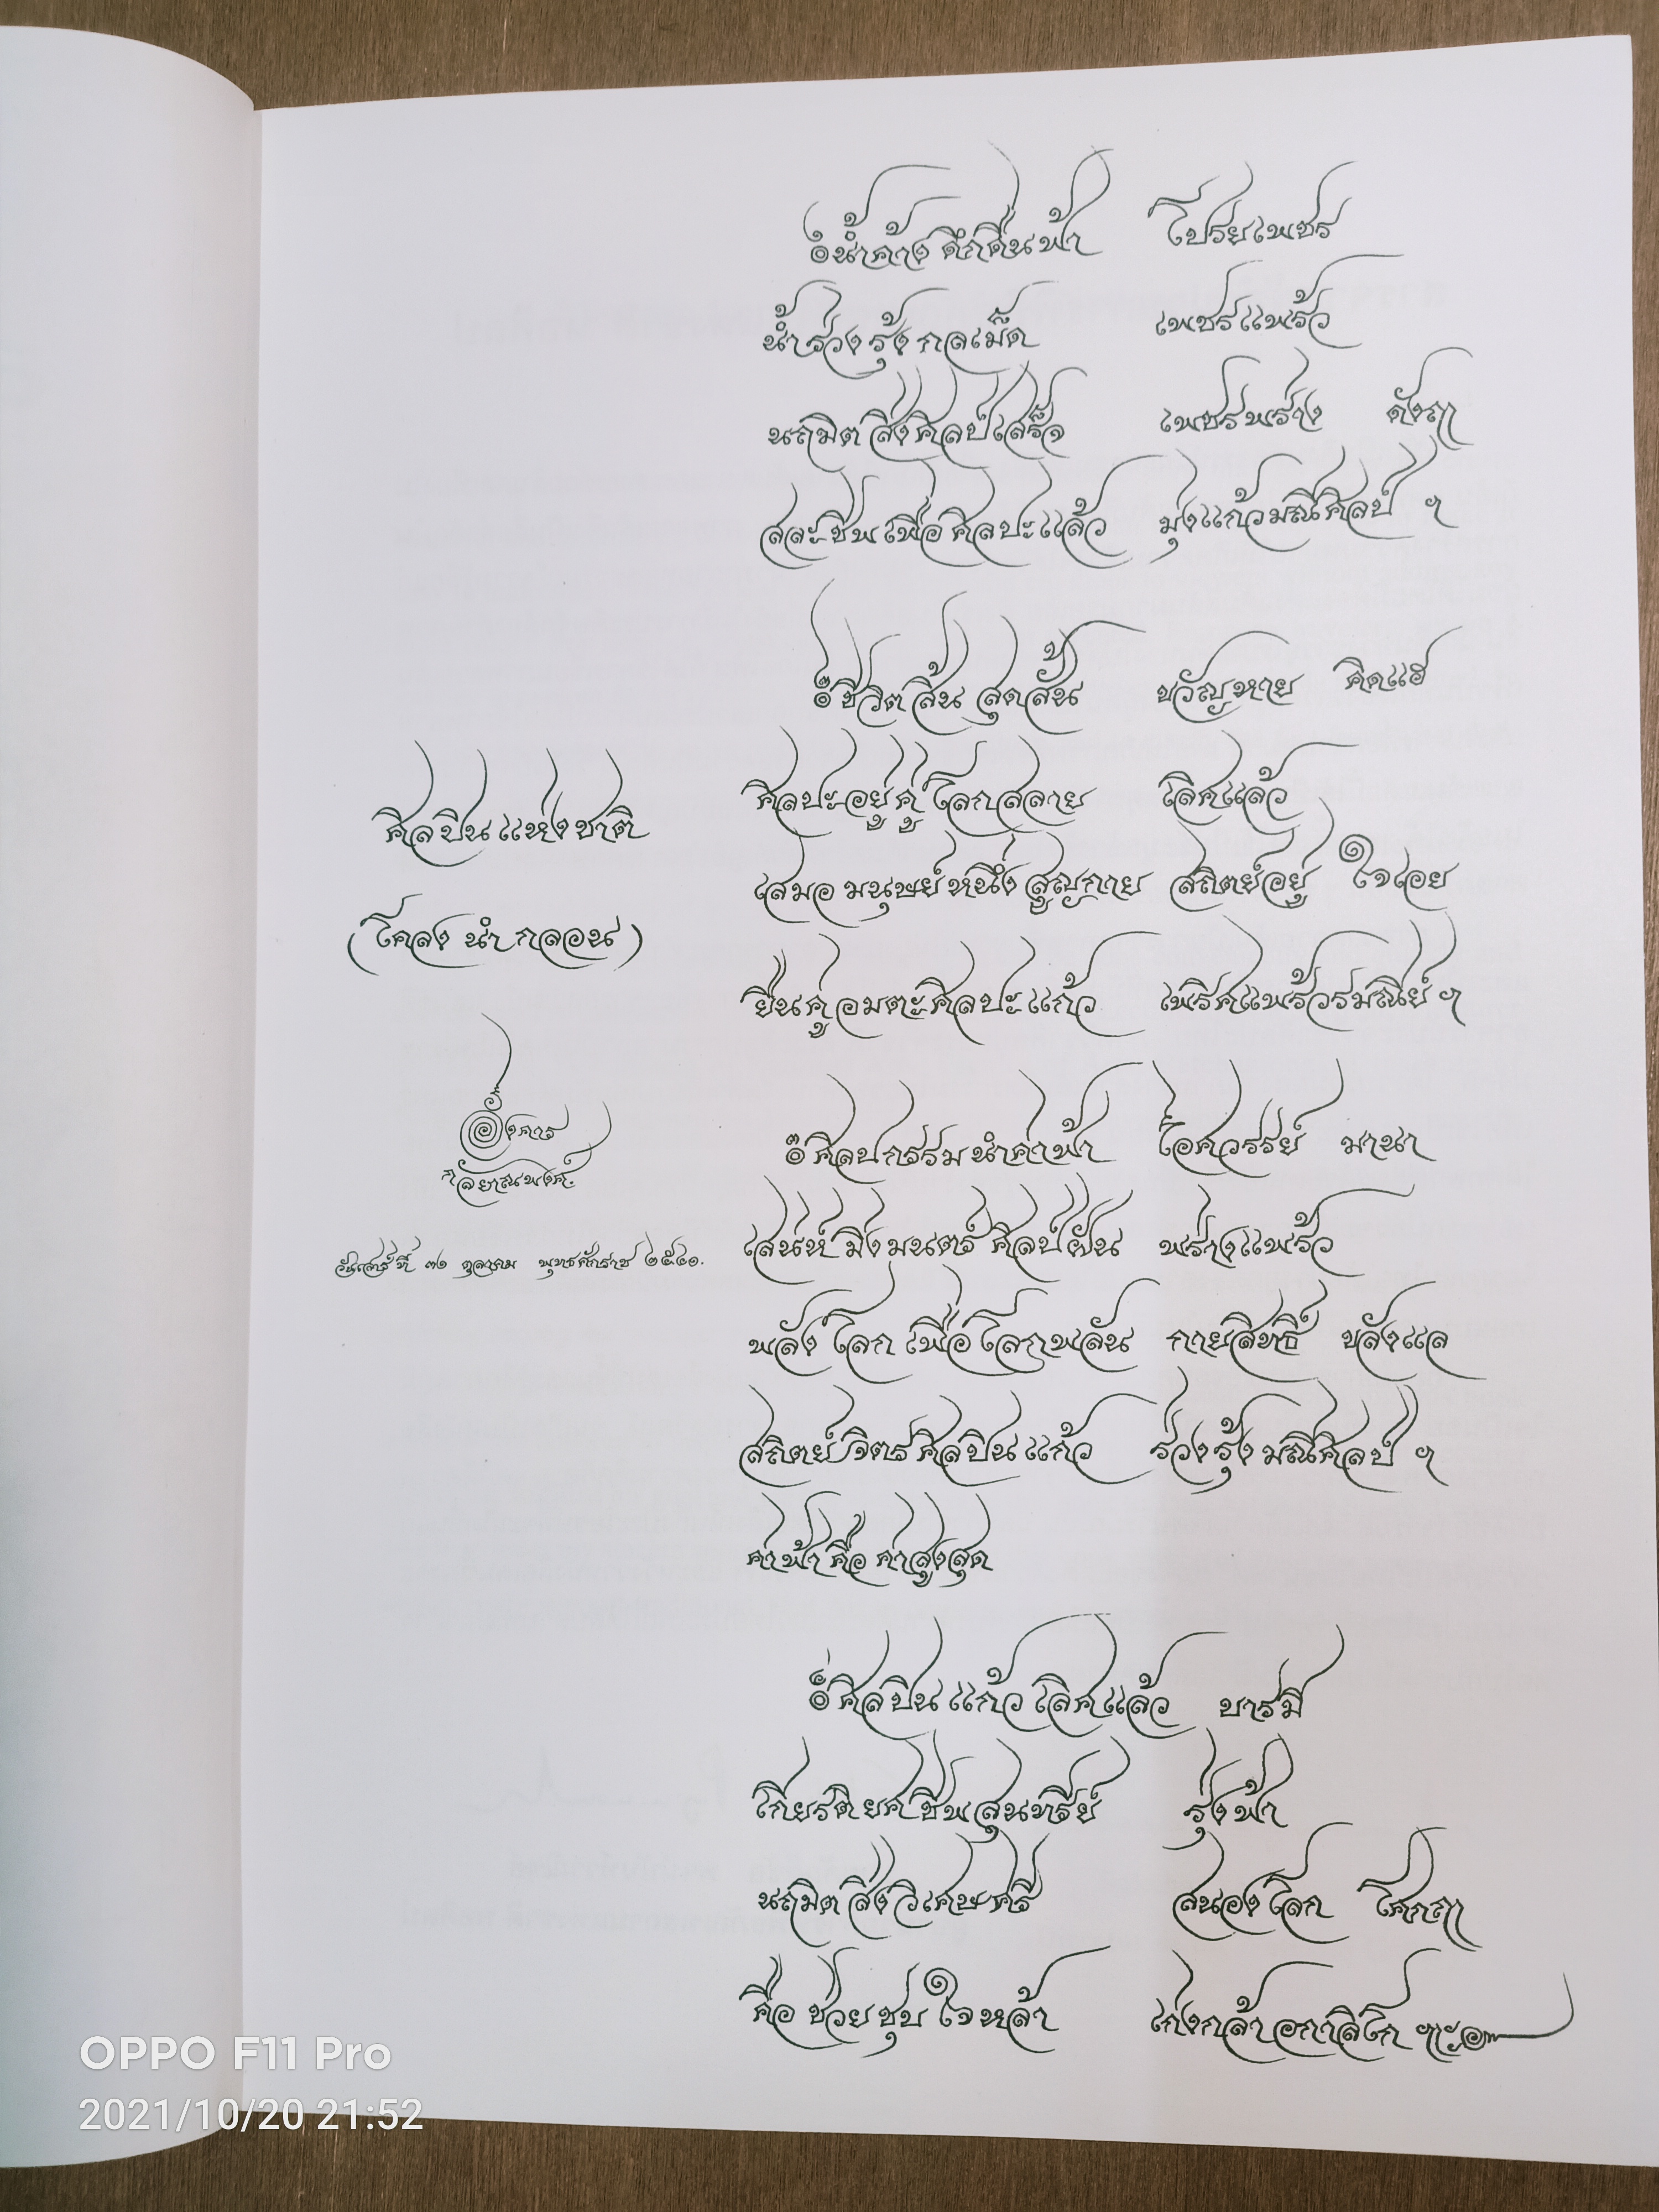 ๏ น้ำค้าง ดึกดื่นฟ้า โปรยเพชร
น้ำร่วงรุ้ง กลเม็ด เพชรแพร้ว
นฤมิต สิ่งศิลป์เสร็จ เพชรพร่าง ดังฤๅ
สละชีพเพื่อศิลปะแล้ว มุ่งแก้วมณีศิลป์ ฯ
๏ ชีวิตสิ้น สุดสั้น ขวัญหาย คิดแฮ
ศิลปะอยู่คู่โลกสลาย เลิศแล้ว
เสมอ มนุษย์หนึ่งสูญกาย สถิตย์อยู่ ใจเอย
ยืนคู่อมตะศิลปะแก้ว เพริศแพร้วรมณีย์ ฯ
ศิลปินแห่งชาติ
(โคลง นำ กลอน)
อังคาร
กัลยาณพงศ์
วันเสาร์ที่ ๓๑ ตุลาคม พุทธศักราช ๒๕๔๑.
๏ ศิลปกรรมนำค่าฟ้า ไอศวรรย์ มานา
เสน่ห์ มิ่งมนตร์ ศิลป์ฝัน พร่างแพร้ว
พลังโลก เพื่อโลกพลัน กายสิทธิ์ ขลังแล
สถิตย์จิตรศิลปินแก้ว ร่วงรุ้งมณีศิลป์ ฯ
ค่าฟ้าคือ ค่าสูงสุด
๏ ศิลปินแก้วเลิศแล้ว บารมี
เกียรติยศชีพสุนทรีย์ รุ่งฟ้า
นฤมิตสิ่งวิเศษศรี สนองโลก โศกฤๅ
คือ ช่วยชุบใจหล้า เก่งกล้าอกาลิโก ฯะ๛
OPPO F11 Pro
2021/10/20 21:52